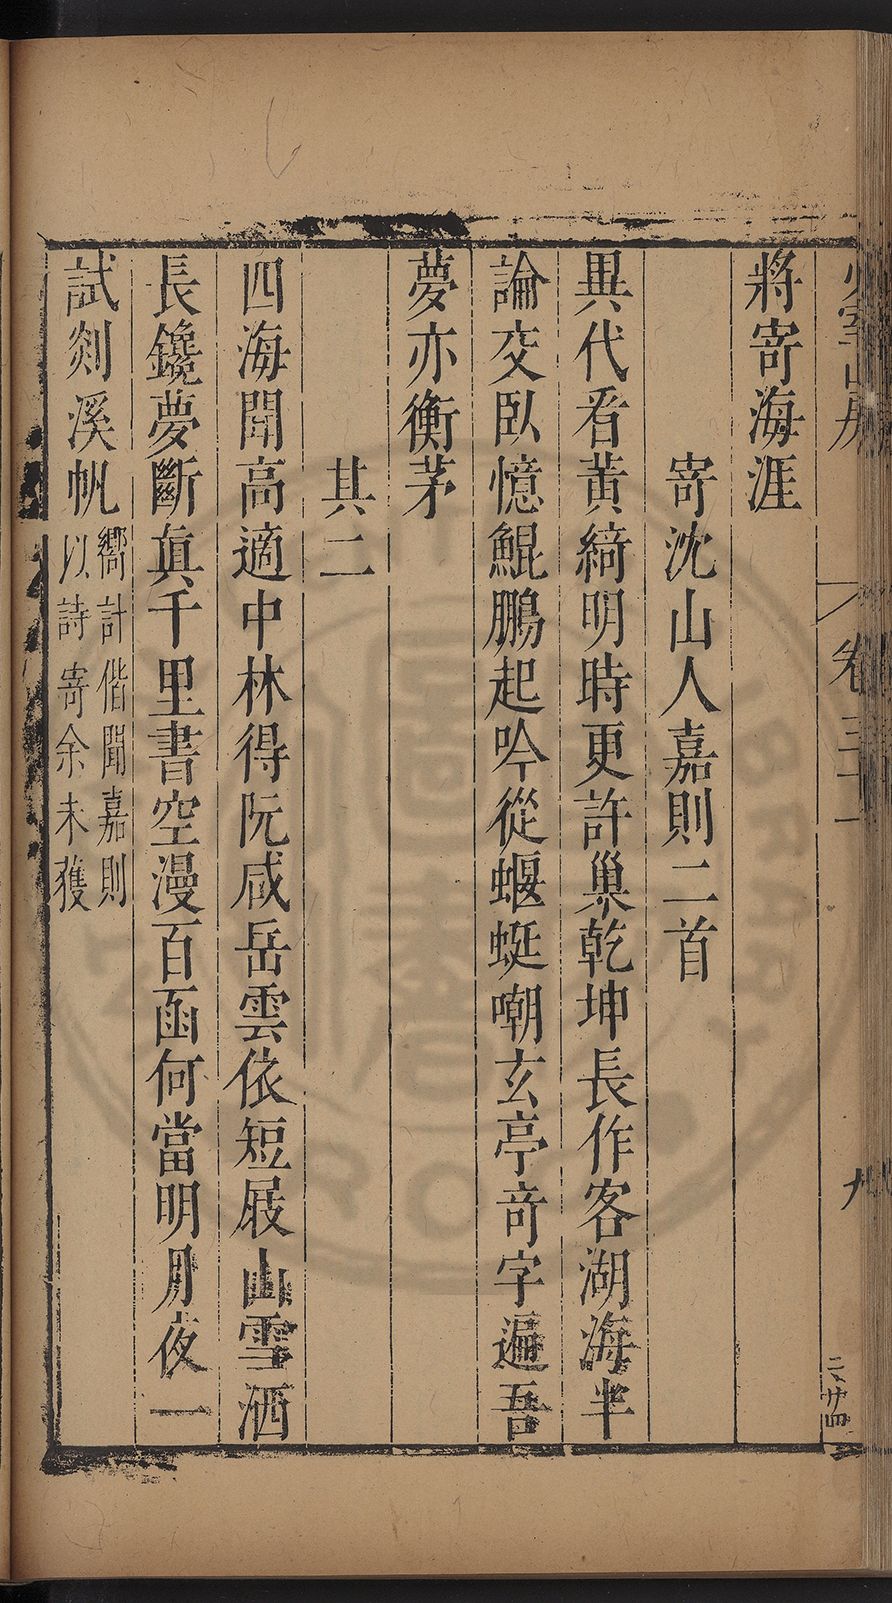 少室山房
卷三十一
九
二、廿四
將寄海涯
寄沈山人嘉則二首
異代看黃綺明時更許巢乾坤長作客湖海半
論交臥憶鯤鵬起吟從蝘蜓嘲玄亭奇字遍吾
夢亦衡茅
其二
四海聞高適中林得阮咸岳雲依短屐山雪洒
長鑱夢斷眞千里書空漫百函何當明月夜一
試剡溪帆
嚮計偕聞嘉則
以詩寄余未獲